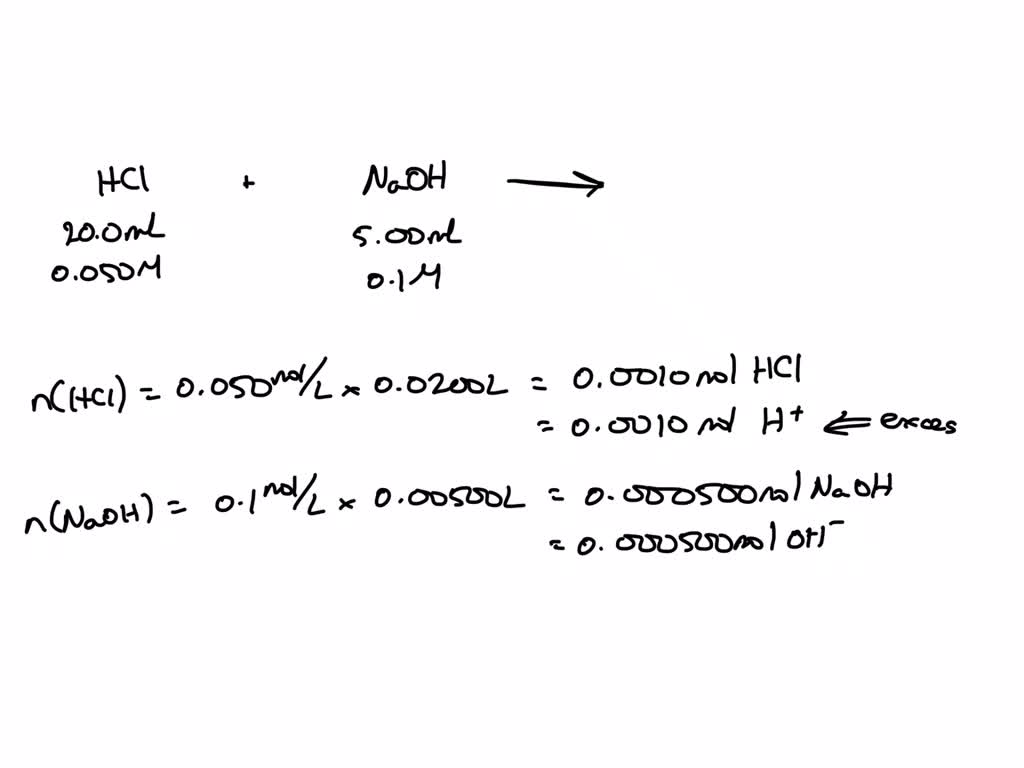 HCl + NaOH →
20.0mL 5.00mL
0.050M 0.1M
n(HCl) = 0.050 mol/L × 0.0200L = 0.0010 mol HCl
= 0.0010 mol H⁺ ⇐ exces
n(NaOH) = 0.1 mol/L × 0.00500L = 0.000500 mol NaOH
= 0.000500 mol OH⁻